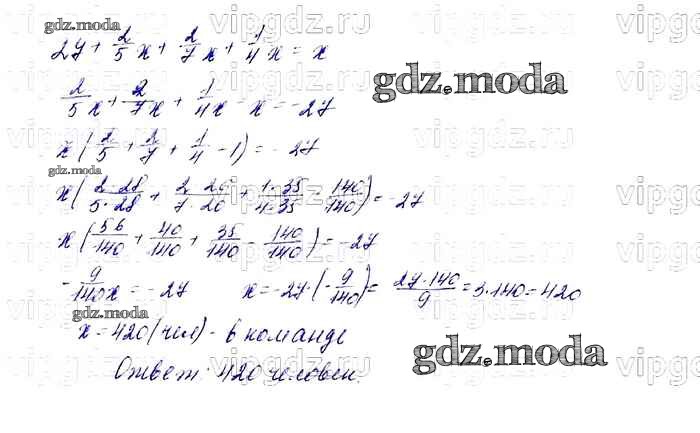 gdz.moda
27 + 2/5 x + 2/7 x + 1/4 x = x
gdz.moda
2/5 x + 2/7 x + 1/4 x - x = -27
x (2/5 + 2/7 + 1/4 - 1) = -27
gdz.moda
x (2·28/5·28 + 2·20/7·20 + 1·35/4·35 - 140/140) = -27
x (56/140 + 40/140 + 35/140 - 140/140) = -27
- 9/140 x = -27 x = -27 · (- 9/140) = 27·140/9 = 3·140 = 420
gdz.moda
x = 420 (чел) - в команде
gdz.moda
Ответ: 420 человек.
vipgdz.ru